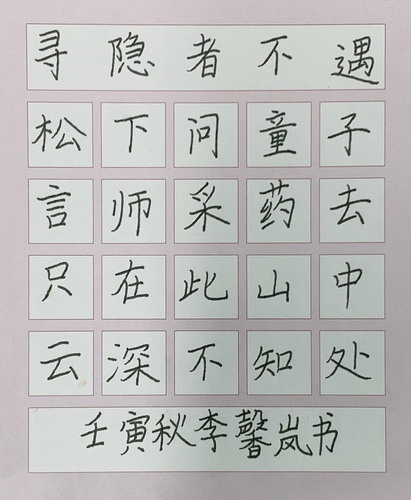 寻隐者不遇
松下问童子
言师采药去
只在此山中
云深不知处
壬寅秋李馨岚书